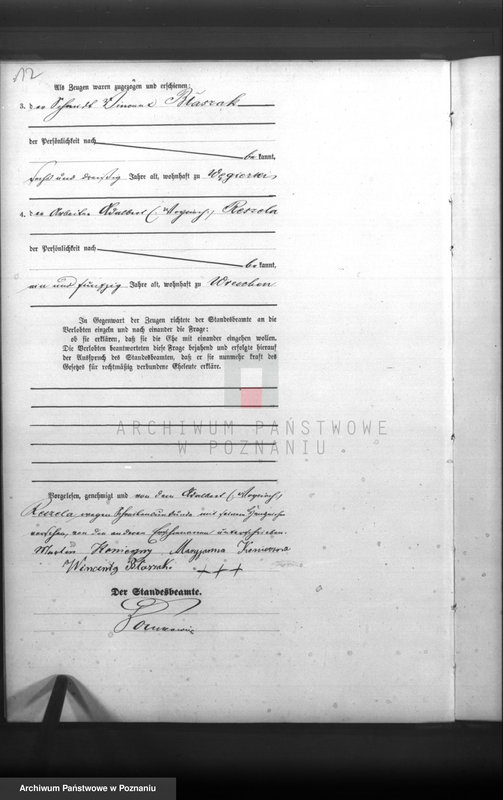 12
Als Zeugen waren zugezogen und erschienen:
3. der Vincent Błaszak
der Persönlichkeit nach
be kannt,
sechs und dreißig Jahre alt, wohnhaft zu
4. der Arbeiter Adalbert (: Woyciech:) Reszela
der Persönlichkeit nach
be kannt,
ein und fünfzig Jahre alt, wohnhaft zu Wreschen
In Gegenwart der Zeugen richtete der Standesbeamte an die
Verlobten einzeln und nach einander die Frage:
ob sie erklären, daß sie die Ehe mit einander eingehen wollen.
Die Verlobten beantworteten diese Frage bejahend und erfolgte hierauf
der Ausspruch des Standesbeamten, daß er sie nunmehr kraft des
Gesetzes für rechtmäßig verbundene Eheleute erkläre.
ARCHIWUM PAŃSTWOWE
W POZNANIU
Vorgelesen, genehmigt und von dem Adalbert (: Woyciech:)
Reszela wegen Schreibensunkunde mit seinem Handzeichen
versehen, von den anderen Erschienenen unterschrieben.
Martin Maryanna
Wincenty Błaszak. +++
Der Standesbeamte.
Archiwum Państwowe w Poznaniu